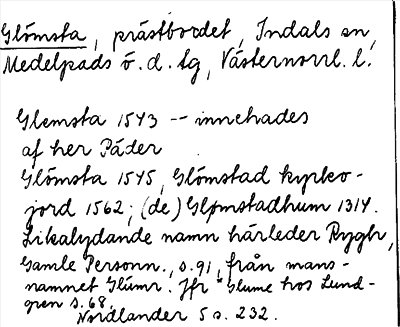 Glömsta, prästbordet, Indals sn,
Medelpads ö. d. tg, Västernorrl. l.
Glemsta 1543 -- innehades
af her Päder
Glömsta 1545, Glömstad kyrko-
jord 1562; (de) Glømstadhum 1314.
Likalydande namn härleder Rygh,
Gamle Personn., s. 91, från mans-
namnet Glúmr. Jfr *Glume hos Lund-
gren s. 68.
Nordlander 5 s. 232.